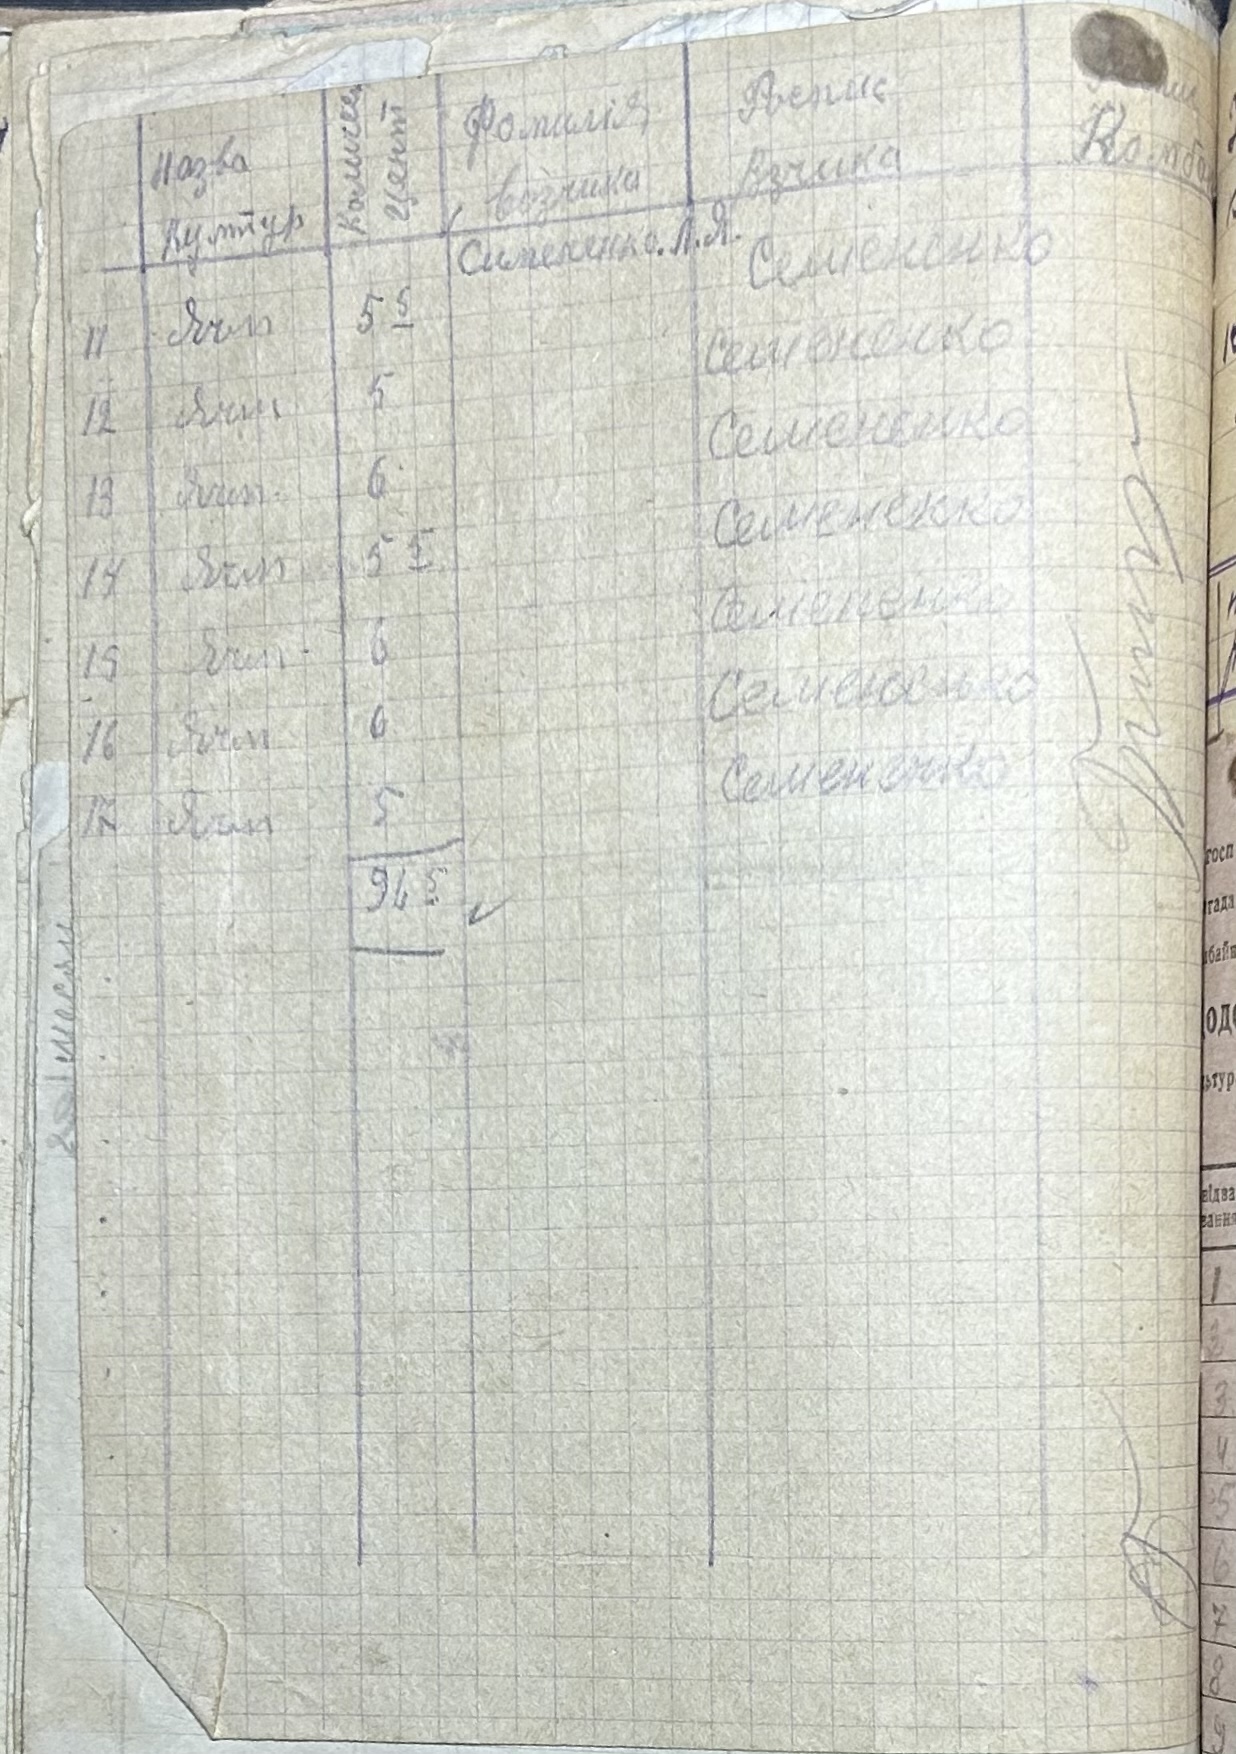 Назва культур Количес Цент Фамилія возчика Роспис взчика Комба
Симененко Л.Я. Семененко
11 Ячм 5 5
Семененко
12 Ячм 5
Семененко
13 Ячм. 6
Семененко
14 Ячм 5 5
Семененко
15 Ячм 6
Семененко
16 Ячм 6
Семененко
17 Ячм 5
94 5
госп
гада
бай
ьтур
відва
вання
1
2
3
4
5
6
7
8
9